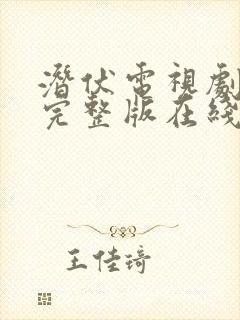 潛伏電視劇
完整版在綫
王佳琦